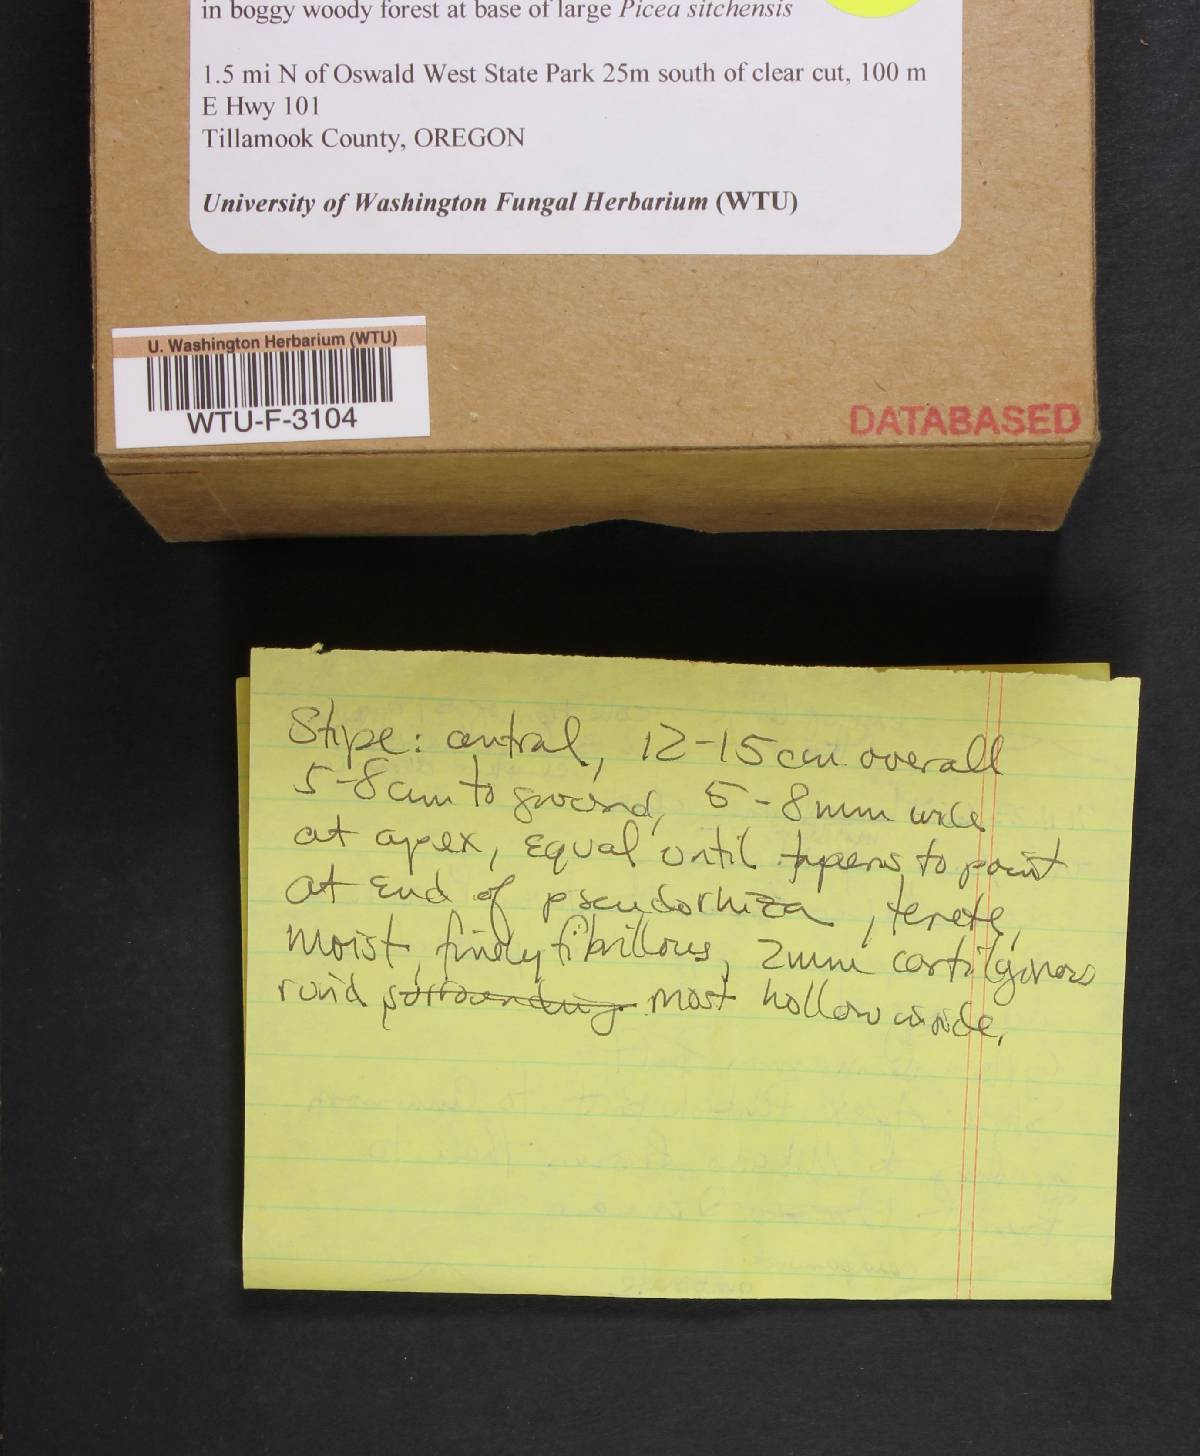 in boggy woody forest at base of large Picea sitchensis
1.5 mi N of Oswald West State Park 25m south of clear cut, 100 m
E Hwy 101
Tillamook County, OREGON
University of Washington Fungal Herbarium (WTU)
U. Washington Herbarium (WTU)
WTU-F-3104
DATABASED
Stipe: central, 12-15cm overall
5-8cm to ground, 5-8mm wide
at apex, equal until tapers to point
at end of pseudorhiza, terete,
moist, finely fibrillous, 2mm cartilginous
rind surrounding most hollow inside,